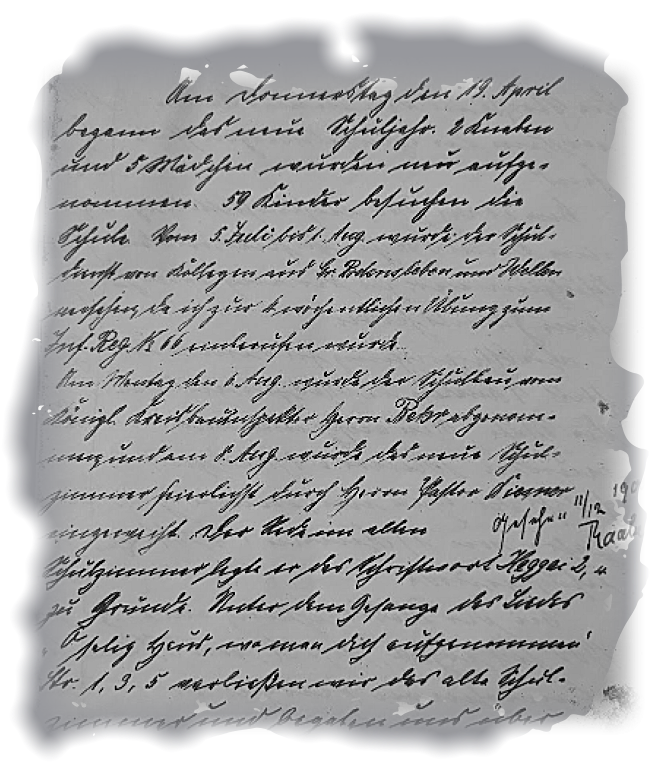 Am Donnerstag den 19. April
begann das neue Schuljahr. 2 Knaben
und 5 Mädchen wurden neu aufge-
nommen. 59 Kinder besuchen die
Schule. Vom 5. Juli bis 1. Aug. wurde der Schul-
dienst von Kollegen aus Gr. Rodensleben und Wellen
versehen, da ich zur 4 wöchentlichen Übung zum
Inf. Reg. № 66 einberufen wurde.
Am Montag den 6. Aug. wurde der Schulbau vom
Königl. Kreisbauinspektor Herrn abgenom-
men, und am 8. Aug. wurde das neue Schul-
zimmer feierlichst durch Herrn Pastor
eingeweiht. Der Rede im alten
Gesehen 11/12
Schulzimmer legte er das Schriftwort Haggai 2,
zu Grunde. Unter dem Gesange des Liedes
„O selig Haus, wo man dich aufgenommen"
Str. 1, 3, 5 verließen wir das alte Schul-
zimmer und begaben uns über